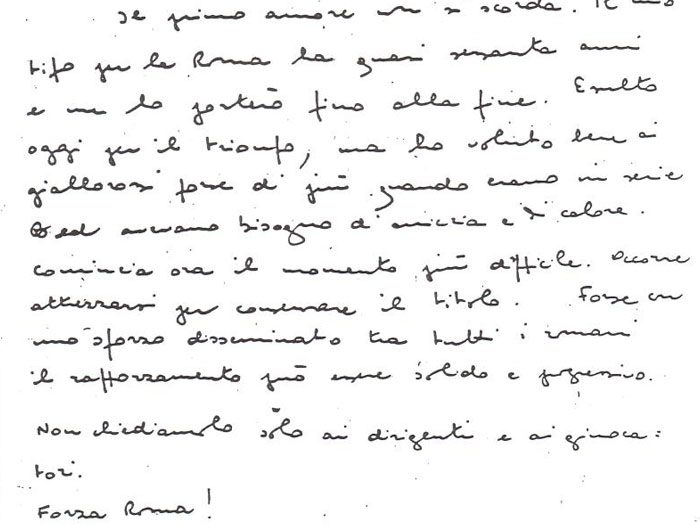 Il primo amore non si scorda. Il mio
tifo per la Roma ha quasi sessanta anni
e me lo porterò fino alla fine. Esulto
oggi per il trionfo, ma ho voluto bene ai
giallorossi forse di più quando erano in serie
B ed avevano bisogno d'amicizia e di calore.
Comincia ora il momento più difficile. Occorre
attrezzarsi per conservare il titolo. Forse con
uno sforzo disseminato tra tutti i romani
il rafforzamento può essere solido e progressivo.
Non chiediamolo solo ai dirigenti e ai gioca=
tori.
Forza Roma!